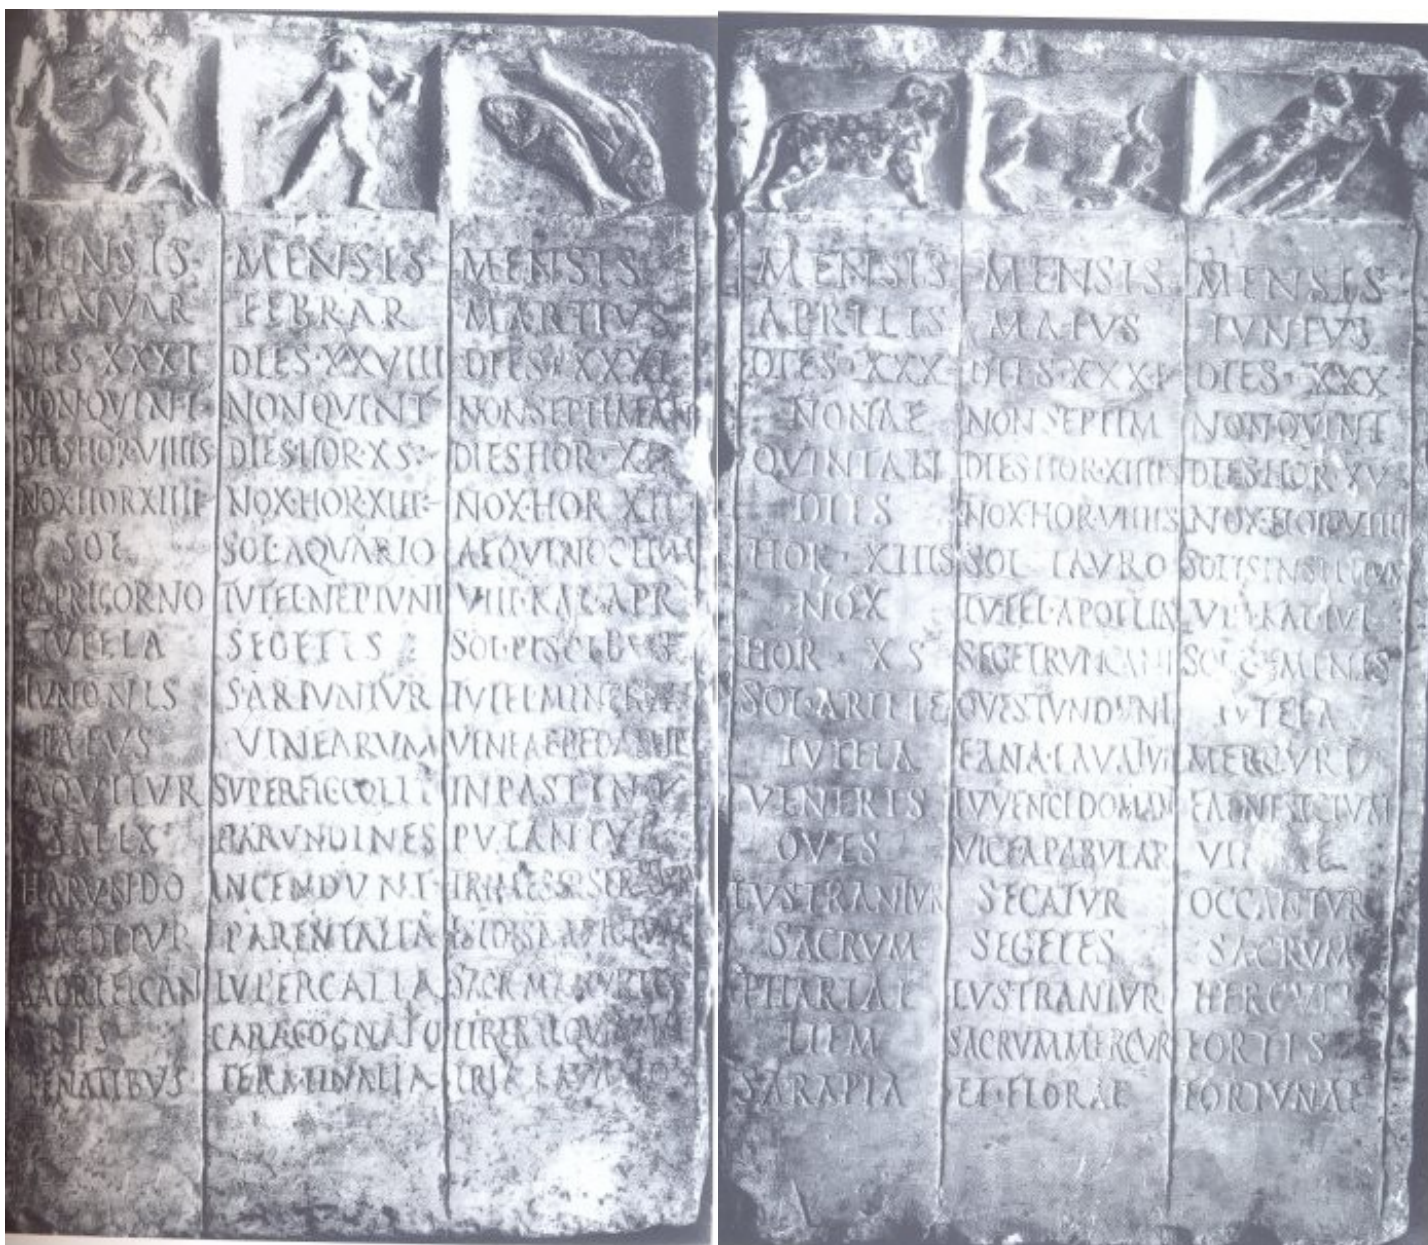 MENSIS
IANVAR
DIES·XXXI
NON·QVINT
DIES HOR·VIIIIS
NOX·HOR·XIIII
SOL
CAPRICORNO
TVTELA
IVNONIS
PALVS
AQVITVR
SALEX
HARVNDO
CAEDITVR
SACRIFICAN
DIS
PENATIBVS
MENSIS
FEBRAR
DIES·XXVIII
NON QVINT
DIES HOR·XS
NOX·HOR·XIII
SOL·AQVARIO
TVTEL NEPTVNI
SEGETES
SARIVNTVR
VINEARVM
SVPERFIC COLLI
HARVNDINES
INCENDVNT
PARENTALIA
LVPERCALIA
CARA COGNATIO
TERMINALIA
MENSIS
MARTIVS
DIES·XXXI
NON SEPTIMAN
DIES HOR XII
NOX·HOR XII
AEQVINOCTIVM
VIII·KAL·APR
SOL·PISCIBVS
TVTEL MINERVAE
VINEAE PEDAMIN
IN PASTINO
PVTANTVR
TRIMES SERITVR
ISIDIS NAVIGIVM
SACR MAMVRIO
LIBERAL QVINQVA
TRIA LAVATIO
MENSIS
APRILIS
DIES·XXX
NONAE
QVINTAN
DIES
HOR·XIIIS
NOX
HOR·XS
SOL·ARIETE
TVTELA
VENERIS
OVES
LVSTRANTVR
SACRVM
PHARIAE
ITEM
SARAPIA
MENSIS
MAIVS
DIES·XXXI
NON SEPTIM
DIES HOR·XIIIIS
NOX HOR·VIIIIS
SOL TAVRO
TVTEL·APOLLIN
SEGET RVNCANT
OVES TVNDVNT
LANA·LAVATVR
IVVENCI DOMANT
VICEA PABVLAR
SECATVR
SEGETES
LVSTRANTVR
SACRVM MERCVR
ET·FLORAE
MENSIS
IVNIVS
DIES·XXX
NON QVINT
DIES HOR XV
NOX·HOR VIIII
SOLISINSTITIVM
VII·KAL·IVL
SOL GEMINIS
TVTELA
MERCVRI
FAENISICIVM
VINEAE
OCCANTVR
SACRVM
HERCVLI
FORTIS
FORTVNAE